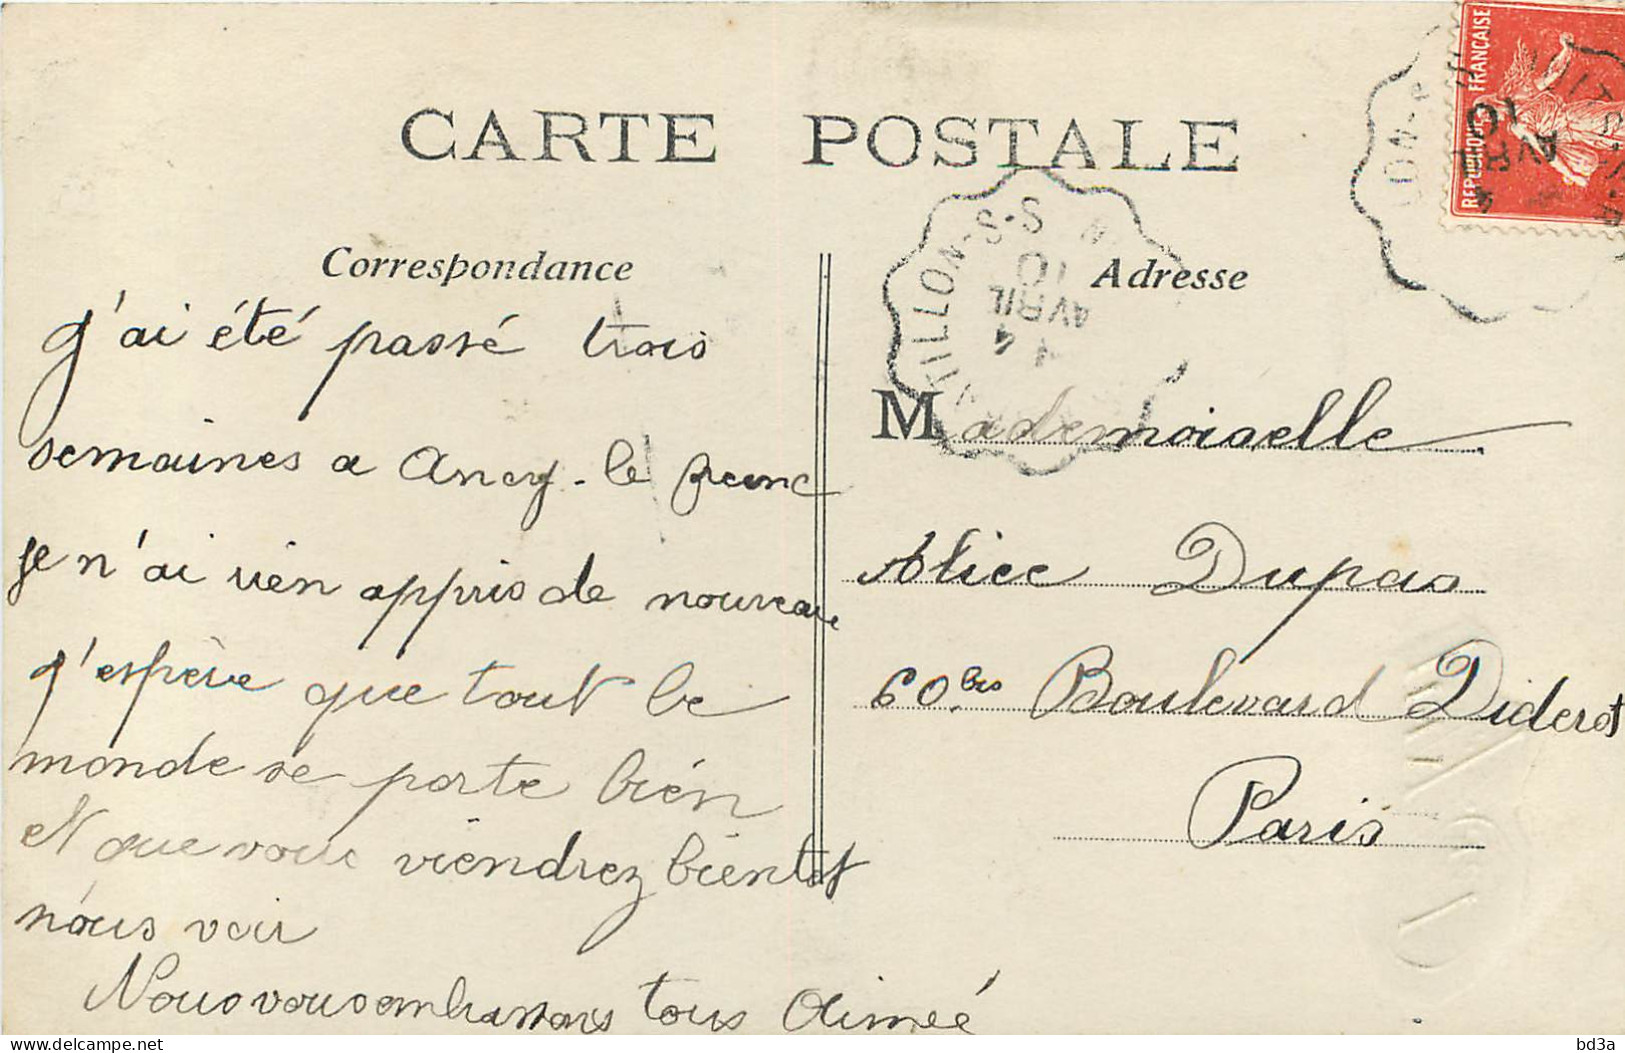 CARTE POSTALE
Correspondance
j'ai été passé trois
semaines a Ancy-le franc
je n'ai rien appris de nouveau
j'espère que tout le
monde se porte bien
et que vous viendrez bientot
nous voir
Nous vous embrassons tous Aimée
Adresse
Mademoiselle
Alice Dupas
60 bis Boulevard Diderot
Paris
REPUBLIQUE FRANÇAISE
AVRIL
10
ILLON-S-S
4
AVRIL
10
delcampe.net
bd3a